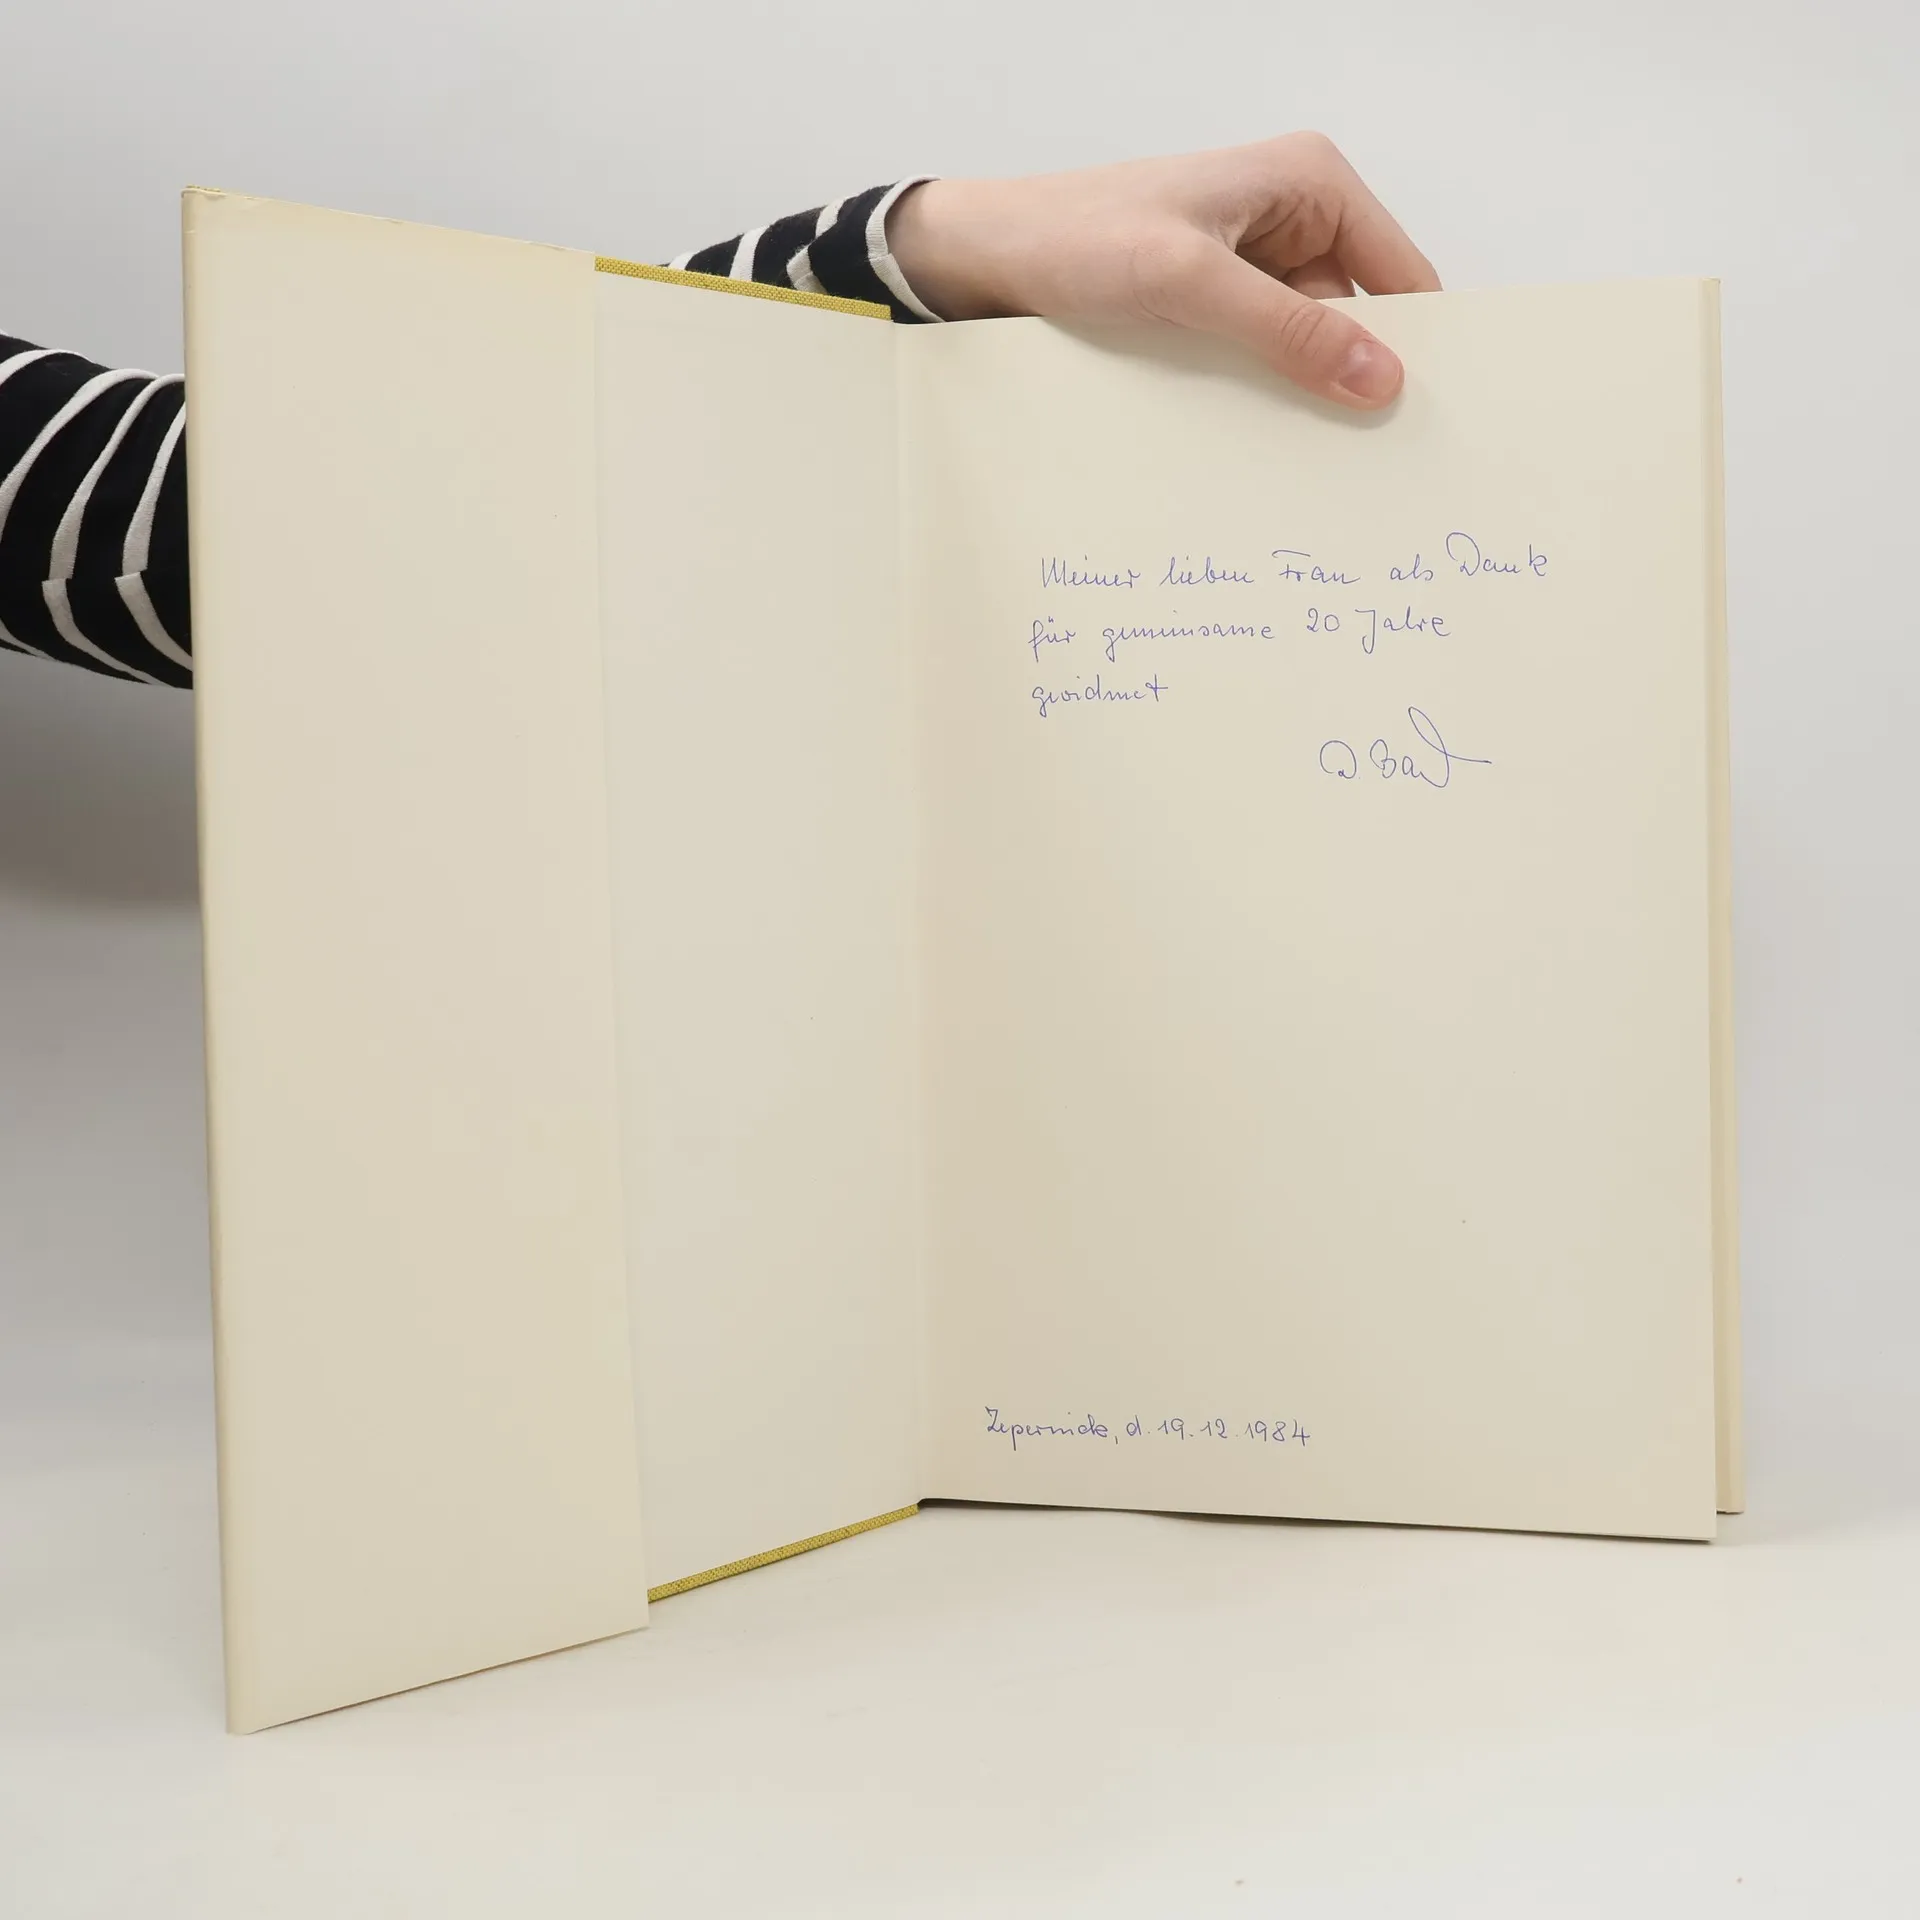 Meiner lieben Frau als Dank
für gemeinsame 20 Jahre
gewidmet
Zepernick, d. 19.12.1984